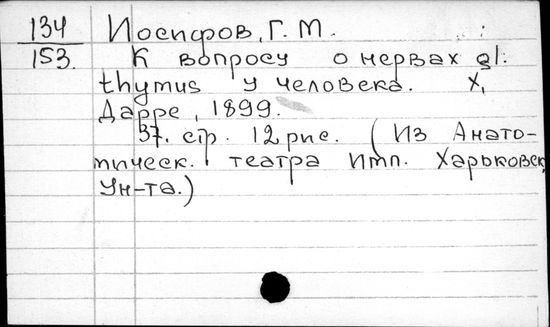 134 Иосифов, Г. М.
153. К вопросу о нервах gl.
thymus у человека. Х,
Дарре, 1899.
37. стр. 12 рис. (Из Анато-
мическ. театра Имп. Харьковск.
Ун-та.)